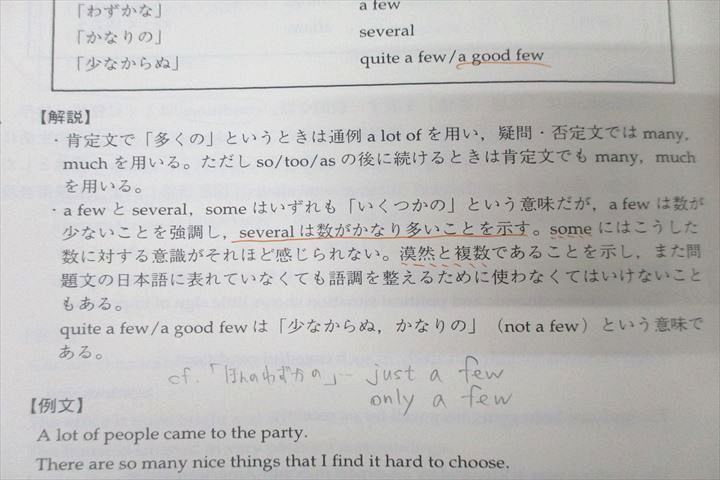 「わずかな」 a few
「かなりの」 several
「少なからぬ」 quite a few/a good few
【解説】
・肯定文で「多くの」というときは通例 a lot of を用い，疑問・否定文では many,
much を用いる。ただし so/too/as の後に続けるときは肯定文でも many，much
を用いる。
・a few と several，some はいずれも「いくつかの」という意味だが，a few は数が
少ないことを強調し，several は数がかなり多いことを示す。some にはこうした
数に対する意識がそれほど感じられない。漠然と複数であることを示し，また問
題文の日本語に表れていなくても語調を整えるために使わなくてはいけないこと
もある。
quite a few/a good few は「少なからぬ，かなりの」（not a few）という意味で
ある。
cf.「ほんのわずかの」… just a few
only a few
【例文】
A lot of people came to the party.
There are so many nice things that I find it hard to choose.